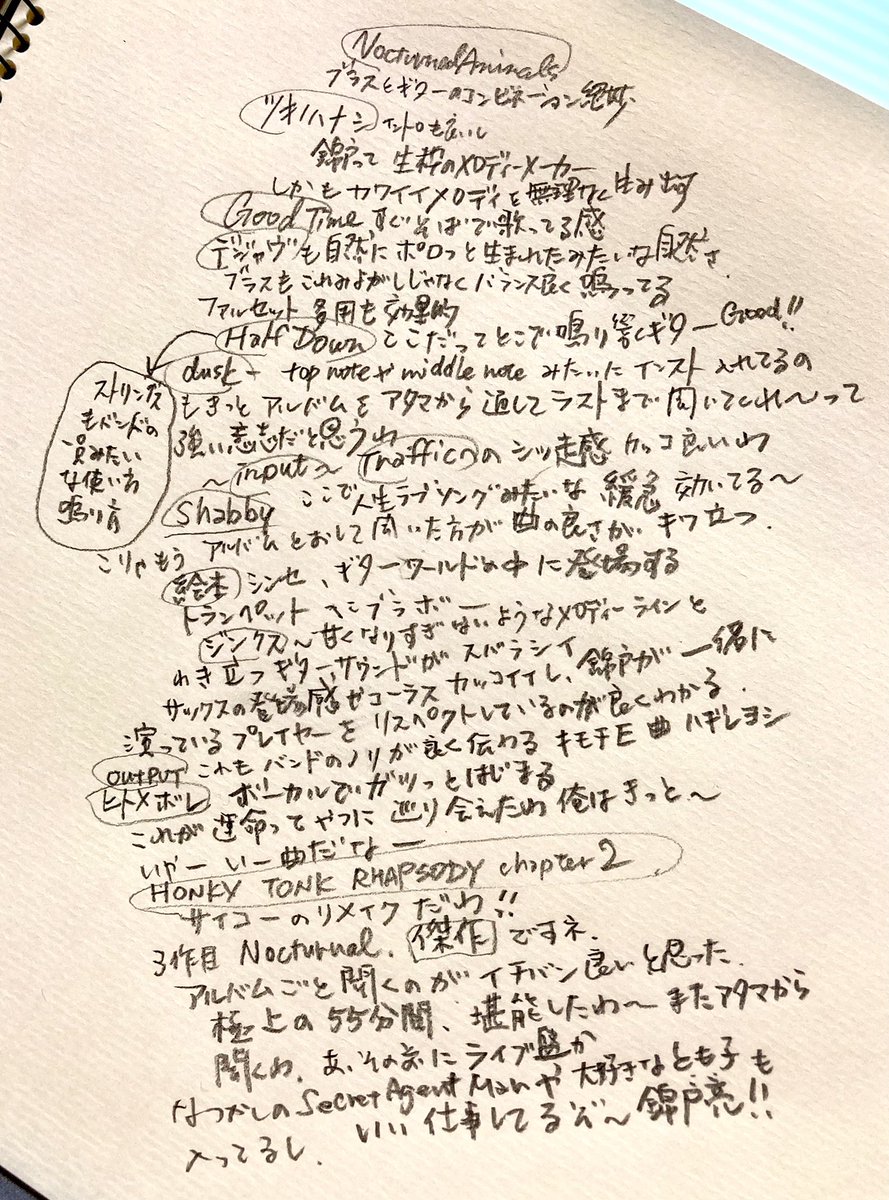 Nocturnal Animals
ブラスとギターのコンビネーション絶妙.
ツキノハナシ イントロも良いし
錦戸って 生粋のメロディーメーカー
しかもカワイイメロディを無理なく生み出す
Good Time すぐそばで歌ってる感
デジャヴも自然にポロっと生まれたみたいな自然さ
ブラスもこれみよがしじゃなくバランス良く鳴ってる
ファルセット多用も効果的
Half Down ここだってとこで鳴り響くギターGood!!
dusk - top noteやmiddle note みたいにインスト入れてるの
もきっと アルバムをアタマから通してラストまで聞いてくれ〜って
強い意志だと思うわ
ストリングス
もバンドの
一員みたい
な使い方
鳴り方
〜input〜 Trafficへのシッ走感 カッコ良いわ
Shabby ここで人生ラブソングみたいな 緩急 効いてる〜
こりゃもう アルバムとおして聞いた方が曲の良さが、キワ立つ.
絵本 シンセ、ギターワールドの中に登場する
トランペット へこブラボー
ジンクス〜甘くなりすぎないようなメロディーラインと
わき立つギターサウンドがスバラシイ
サックスの登場感ゼコーラス カッコイイし、錦戸が一緒に
演っているプレイヤーをリスペクトしているのが良くわかる.
OUTPUT これもバンドのノリが良く伝わる キモチE曲 ハギレヨシ
ヒトメボレ ボーカルでいガツっとはじまる
これが運命ってやつに巡り会えたわ俺はきっと〜
いやーいー曲だなー
HONKY TONK RHAPSODY chapter 2
サイコーのリメイクだわ!!
3作目 Nocturnal. 傑作ですネ.
アルバムごと聞くのがイチバン良いと思った.
極上の55分間、堪能したわ〜またアタマから
聞くわ. あ、その前にライブ盤か
なつかしのSecret Agent Manや大好きなとも子も
入ってるし. いい仕事してるぞ〜錦戸亮!!